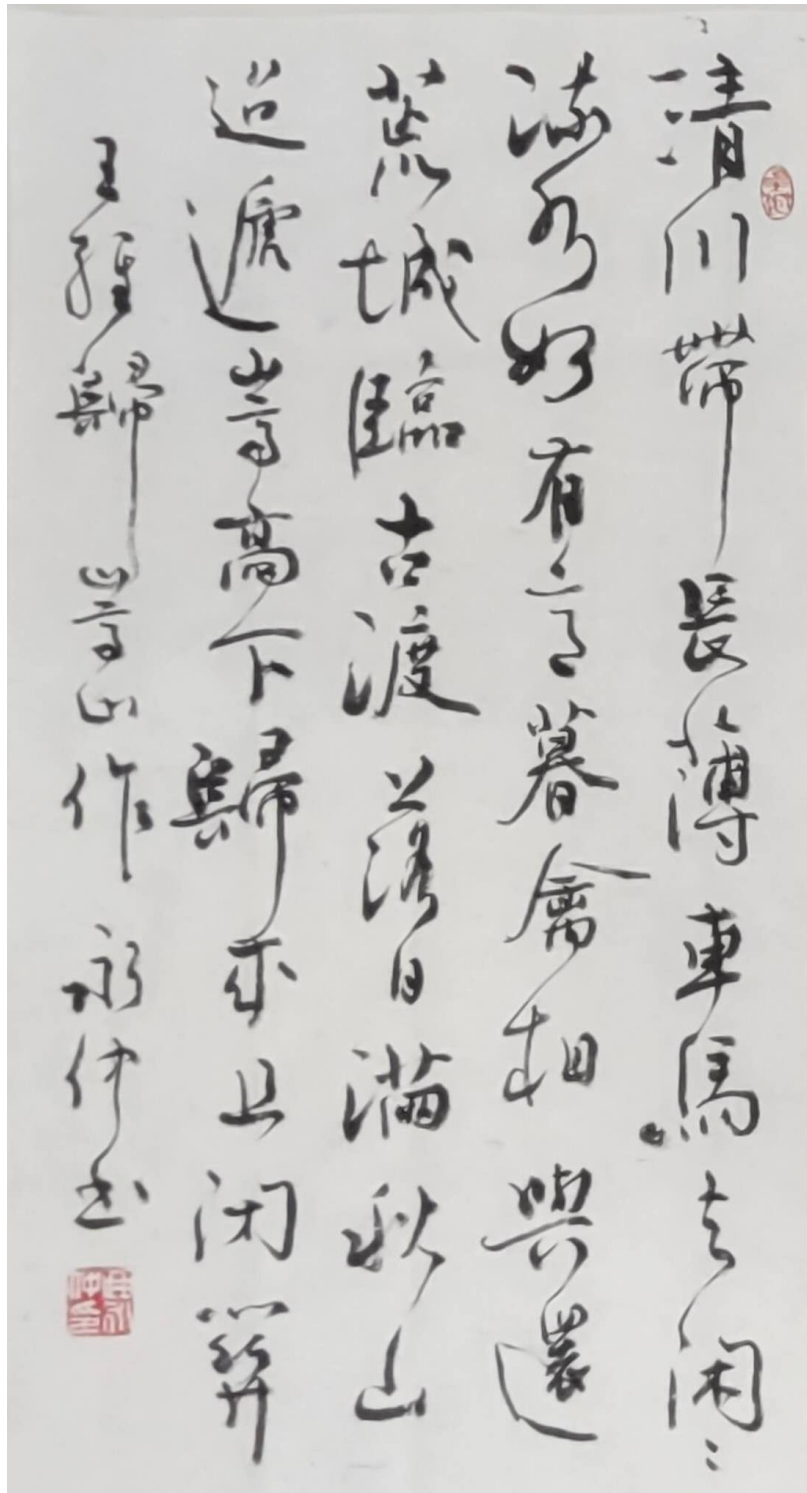 清川帶長薄車馬去閑〻
流水如有意暮禽相與還
荒城臨古渡落日滿秋山
迢遞嵩高下歸來且閉關
王維歸嵩山作 永仲书